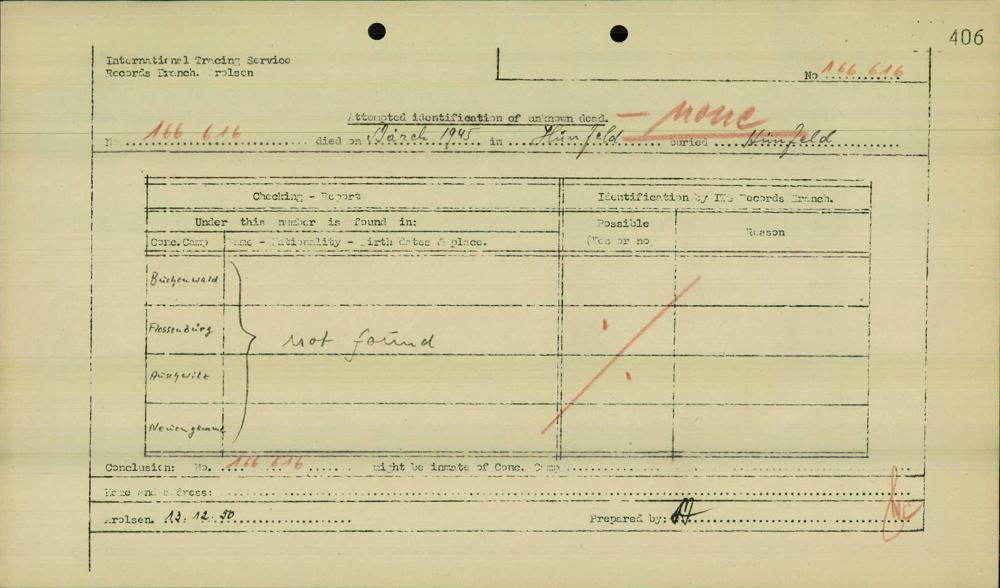 406
International Tracing Service
Records Branch. Arolsen
No 166 616
Attempted identification of unknown dead. — none
No 166 616 died on March 1945 in Hünfeld buried Hünfeld
Checking - Report
Identification by ITS Records Branch.
Under this number is found in:
Possible
(Yes or no)
Reason
Conc. Camp Name - Nationality - Birth dates & place.
Buchenwald
Flossenbürg
not found
Auschwitz
Neuengamme
Conclusion: No. 166 616 might be inmate of Conc. Camp
Name and address:
Arolsen. 13. 12. 50 Prepared by: